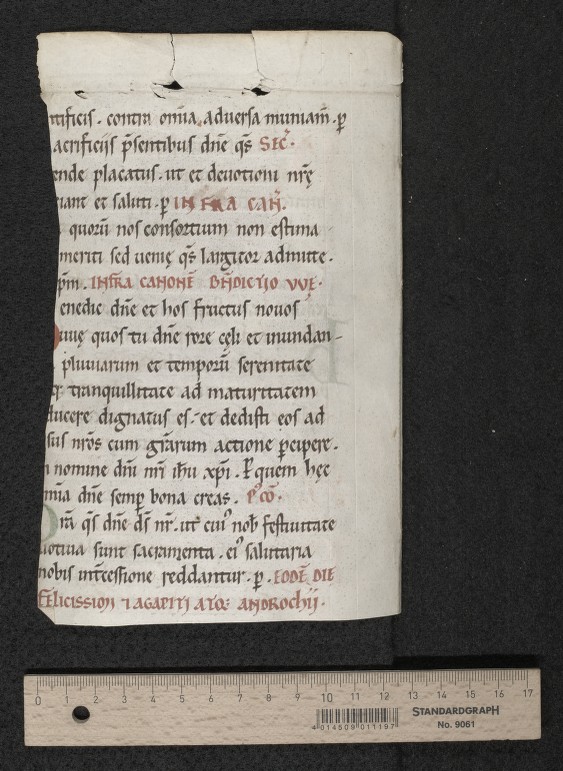 ntificis . contra omĩa aduersa muniam̃ . ꝑ
acrificiis p̃sentibus dñe qs̃ SEC̃ .
ende placatus . ut et deuotioni nr̃ę
iant et saluti . ꝑ INFRA CAÑ .
quorũ nos consortium non estima
meriti sed uenię qs̃ largitor admitte .
p̃m . INFRA CANONẼ BÑDICTIO VVE .
enedic dñe et hos fructus nouos
uuę quos tu dñe rore cęli et inundan-
pluuiarum et temporũ serenitate
q; tranquillitate ad maturitatem
ducere dignatus es . et dedisti eos ad
sus nr̃os cum gr̃arum actione ꝑcipere .
n nomine dñi nr̃i ihũ xp̃i . P quem hęc
mĩa dñe semꝑ bona creas . P̃ CÕ .
ra qs̃ dñe ds̃ nr̃ . ut cui⁹ nob̃ festiuitate
uotiua sunt sacramenta . ei⁹ salutaria
nobis int̃cessione reddantur . ꝑ . EODẼ DIE
FELICISSIMI ⁊ AGAPITI ANDROCHII .
0 1 2 3 4 5 6 7 8 9 10 11 12 13 14 15 16 17
4 014509 011197
STANDARDGRAPH
No. 9061